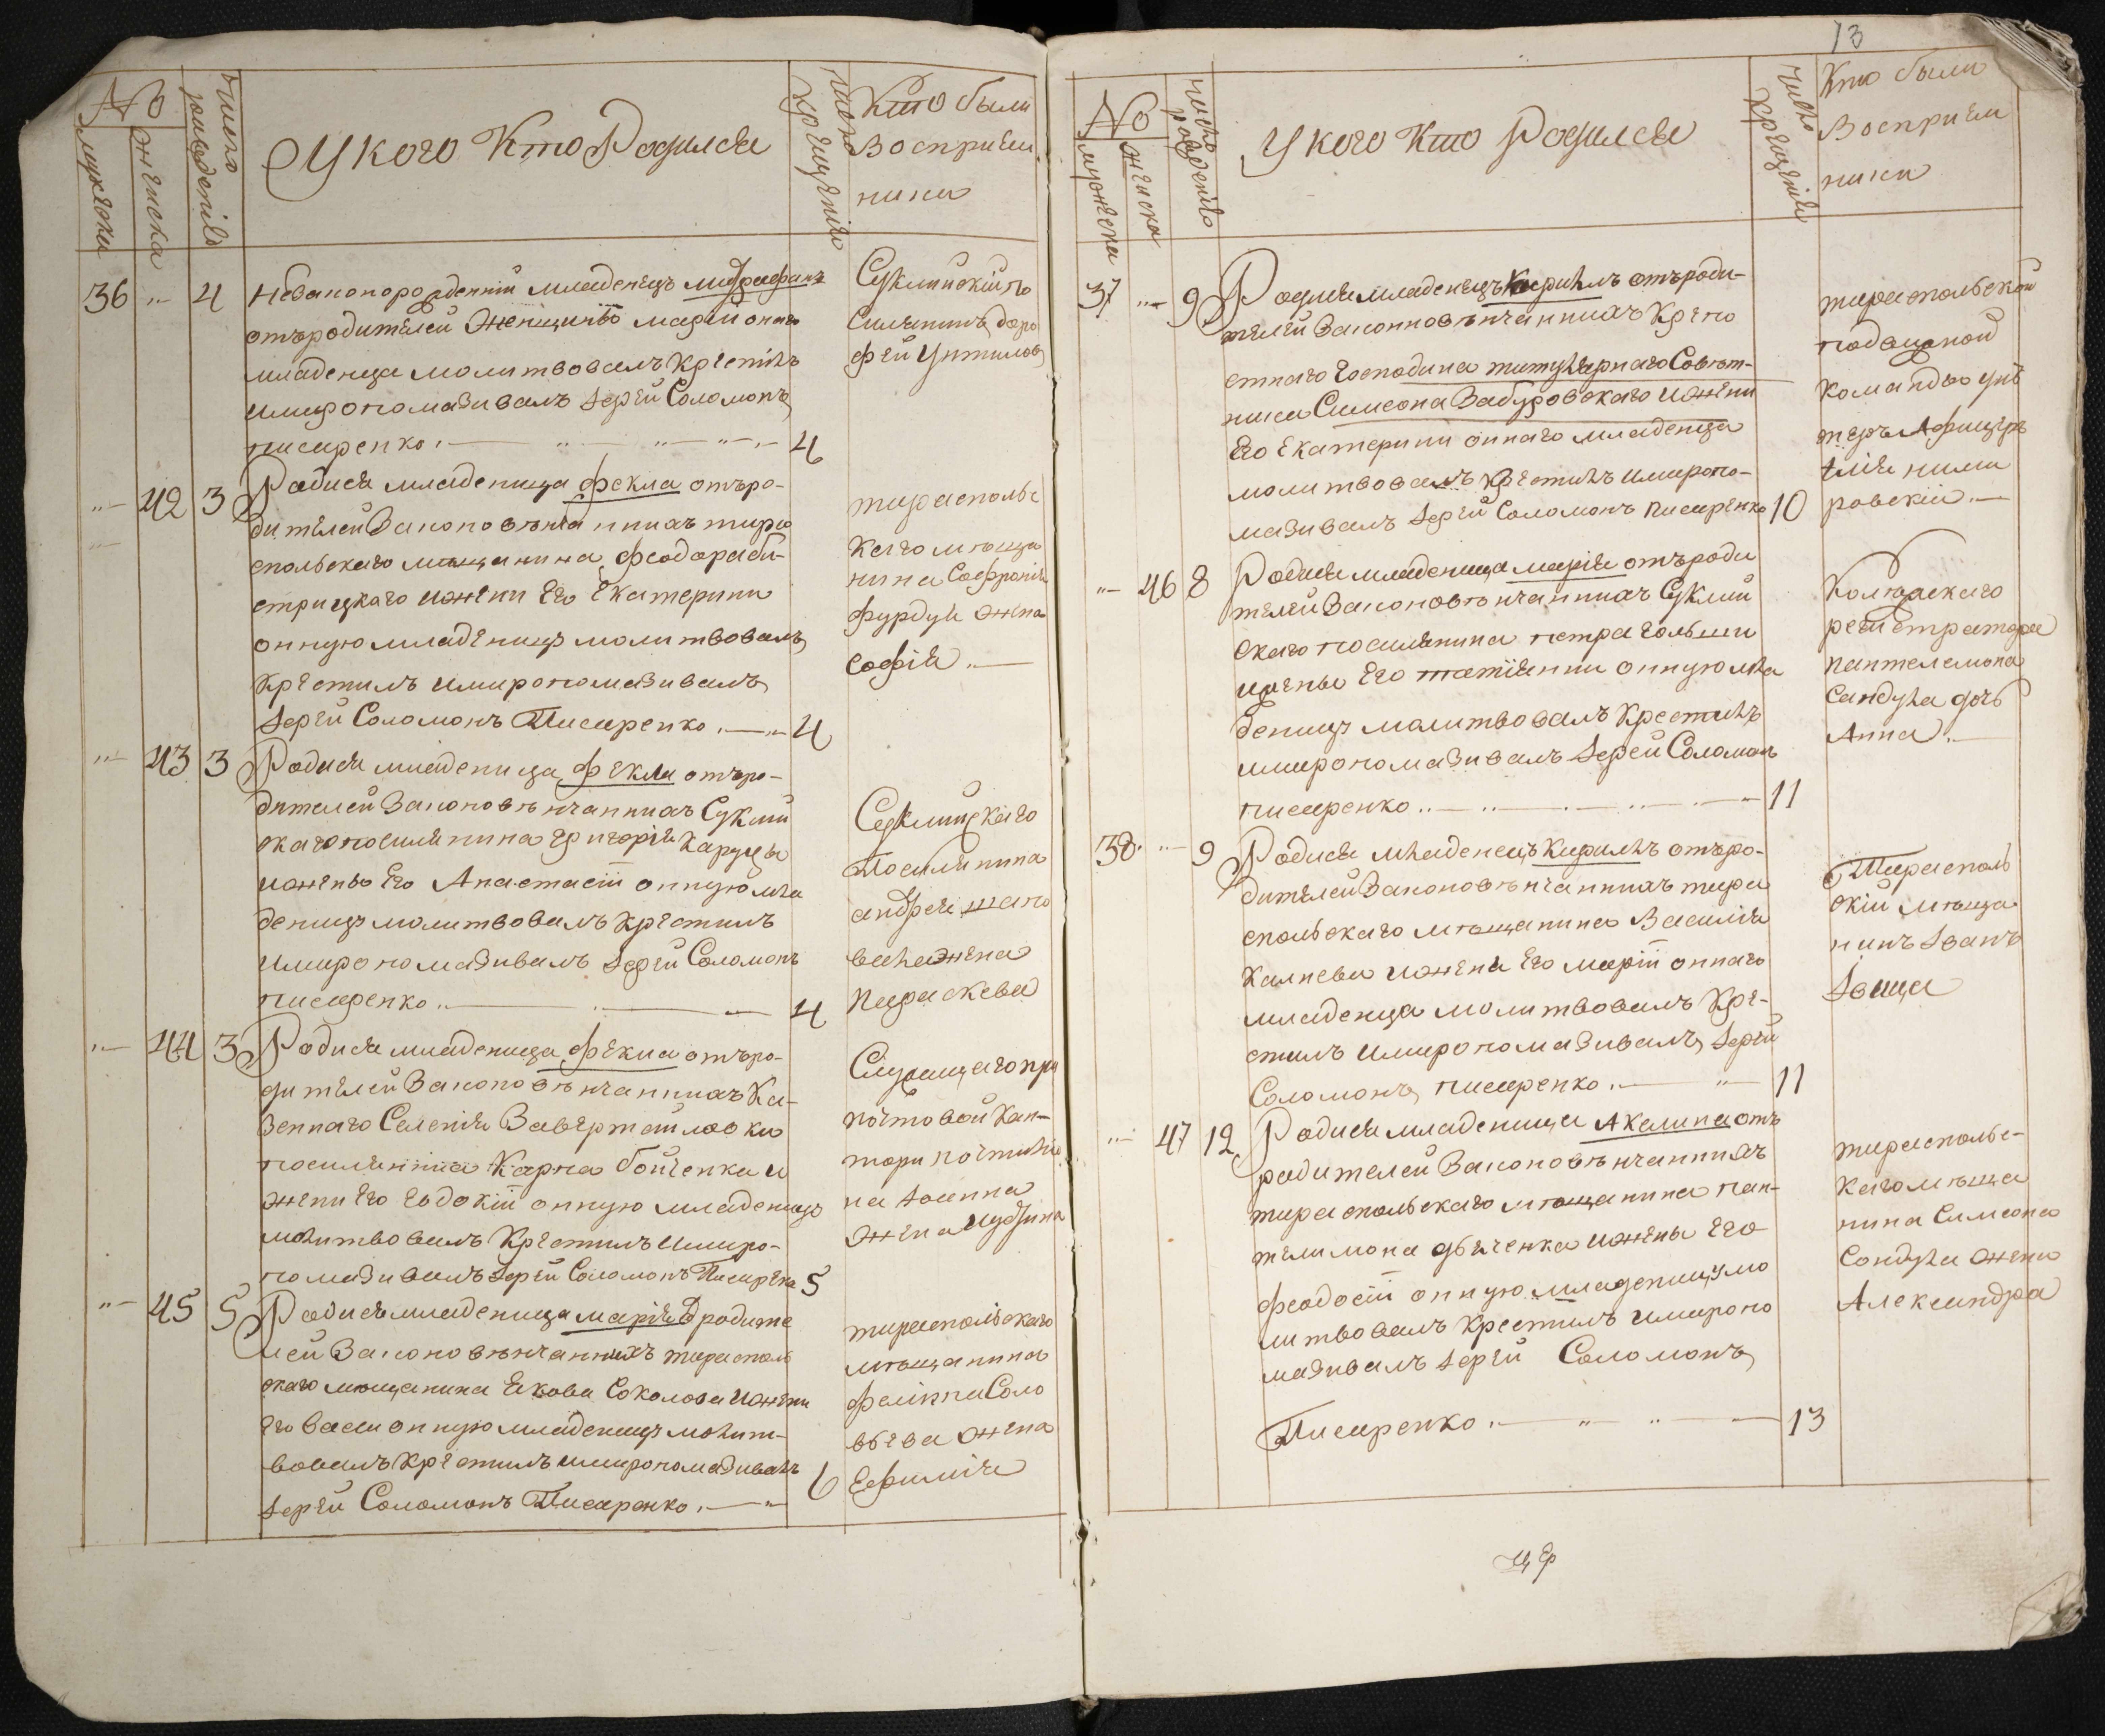 No
мужеска
женска
число рождения
У кого Кто Родился
число крещения
Кто были
Восприем
ники
36 4
незаконорожденний младенецъ митрофанъ
отъродителей Женщины марии онаго
младенца молитвовалъ крестилъ
имиропомазивалъ Іерей Соломонъ
писаренко 4
Суклийский по
силянинъ доро
фей
42 3
Родися младеница фекла отъро-
дителей Законовѣнчанныхъ тира
спольскаго мещанина феодора би-
стрицкаго ижени Его Екатерини
онную младеницу молитвовалъ
крестилъ имиропомазивалъ
Іерей Соломонъ Писаренко 4
тирасполь
скаго мѣща
нина Софронія
фурдуя жена
Софія
43 3
Родися младеница фекла отъро-
дителей Законовѣнчанныхъ Суклий
скаго посилянина григорія Каруцы
ижены Его Анастасіи онную мла
деницу молитвовалъ крестилъ
имиропомазивалъ Іерей Соломонъ
писаренко 4
Суклийскаго
Посилянина
андрея шапо
вала жена
Параскева
44 3
Родися младеница фекла отъро-
дителей Законовѣнчанныхъ Ка-
зеннаго Селенія
посилянина Карпа бойченка и
жени Его Евдокіи онную младеницу
молитвовалъ крестилъ имиро-
помазивалъ Іерей Соломонъ Писаренко 5
Служащаго при
почтовой кан-
тори
на Іоанна
жена
45 5
Родися младеница марія Ѿ родите
лей Законовѣнчанныхъ тирасполь
скаго мещанина Якова Соколова ижени
Его Васси онную младеницу молит-
вовалъ крестилъ имиропомазивалъ
Іерей Соломонъ Писаренко 6
тираспольскаго
мѣщанина
филіппа Соло
вьева жена
Ефимія
13
No
мужеска
женска
число рождения
У кого Кто Родился
число крещения
Кто были
Восприем
ники
37 9
Родися младенецъ Кирилъ отъроди-
телей Законновѣнчанныхъ Крепо
стнаго господина титулярнаго Совѣт-
ника Симеона Забуровскаго ижени
Его Екатерини оннаго младенца
молитвовалъ крестилъ имиропо-
мазивалъ Іерей Соломонъ Писаренко 10
тираспольской
командѣ ун
теръ Афицеръ
Илія неми
ровскій
46 8
Родися младеница марія отъроди
телей Законовѣнчанныхъ Суклий
скаго посилянина петра голыши
ижены Его татіянни онную мла
деницу молитвовалъ крестилъ
имиропомазивалъ Іерей Соломонъ
писаренко 11
Колѣжскаго
регистратора
пантелемона
Сандула дочь
Анна
38 9
Родися младенецъ Кирилъ отъро-
дителей Законовѣнчанныхъ тира
спольскаго мѣщанина Василія
Калнева ижена Его маріи оннаго
младенца молитвовалъ кре-
стилъ имиропомазивалъ Іерей
Соломонъ писаренко 11
Тирасполь
скій мѣща
нинъ Іванъ
Іваща
47 12
Родися младеница Акалина отъ
родителей Законовѣнчанныхъ
тираспольскаго мѣщанина пан-
телимона дьяченка ижены Его
феодосіи онную младеницу мо
литвовалъ крестилъ имиропо
мазивалъ Іерей Соломонъ
Писаренко 13
тирасполь-
скаго мѣща
нина Симеона
Сондула жена
Александра